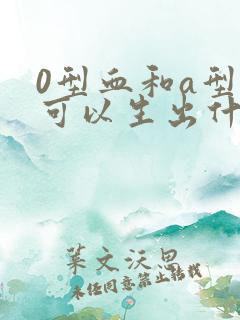 0型血和a型
可以生出什
葉文沃思
未经同意禁止转载